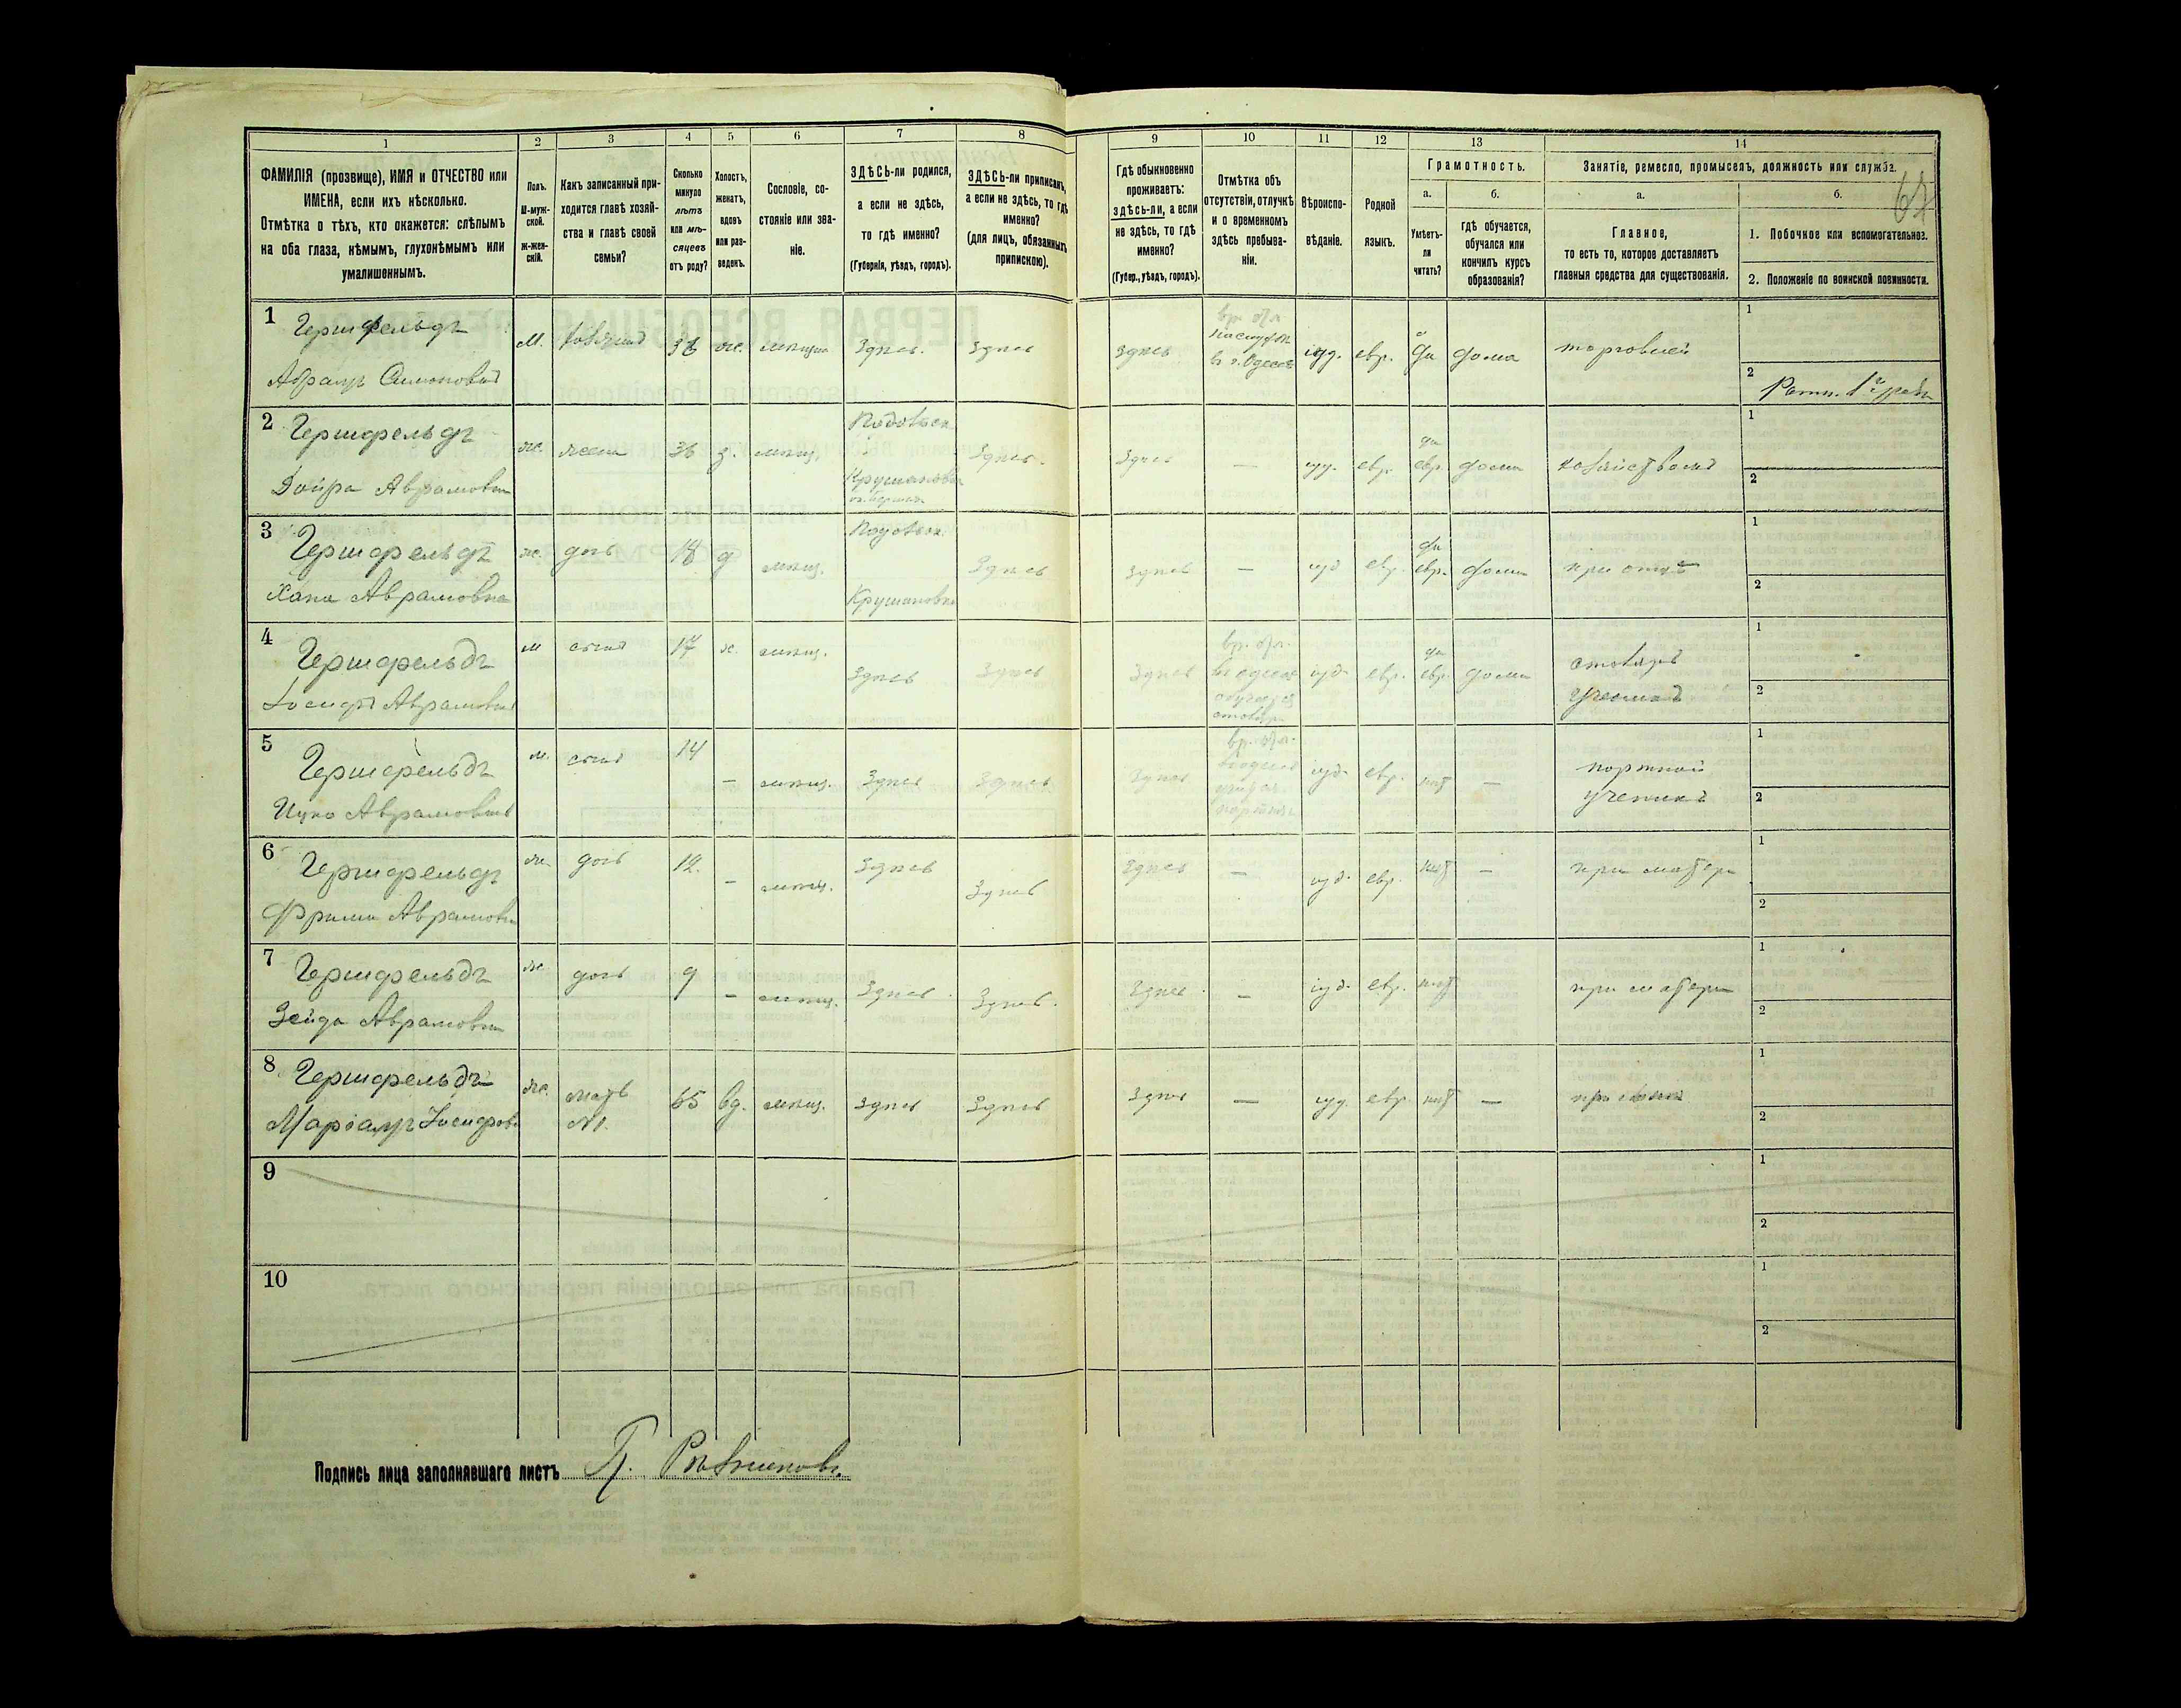 1 2 3 4 5 6 7 8 9 10 11 12 13 14
ФАМИЛІЯ (прозвище), ИМЯ и ОТЧЕСТВО или
ИМЕНА, если ихъ нѣсколько.
Отмѣтка о тѣхъ, кто окажется: слѣпымъ
на оба глаза, нѣмымъ, глухонѣмымъ или
умалишеннымъ.
Полъ.
М-муж-
ской.
ж-жен-
скій.
Какъ записанный при-
ходится главѣ хозяй-
ства и главѣ своей
семьи?
Сколько
минуло
лѣтъ
или мѣ-
сяцевъ
отъ роду?
Холостъ,
женатъ,
вдовъ
или раз-
веденъ.
Сословіе, со-
стояніе или зва-
ніе.
ЗДѢСЬ-ли родился,
а если не здѣсь,
то гдѣ именно?
(Губернія, уѣздъ, городъ).
ЗДѢСЬ-ли приписанъ,
а если не здѣсь, то гдѣ
именно?
(для лицъ, обязанныхъ
припискою).
Гдѣ обыкновенно
проживаетъ:
здѣсь-ли, а если
не здѣсь, то гдѣ
именно?
(Губер., уѣздъ, городъ).
Отмѣтка объ
отсутствіи, отлучкѣ
и о временномъ
здѣсь пребыва-
ніи.
Вѣроиспо-
вѣданіе.
Родной
языкъ.
Грамотность.
а.
Умѣетъ-
ли
читать?
б.
гдѣ обучается,
обучался или
кончилъ курсъ
образованія?
Занятіе, ремесло, промыселъ, должность или служба.
а.
Главное,
то есть то, которое доставляетъ
главныя средства для существованія.
б.
1. Побочное или вспомогательное.
2. Положеніе по воинской повинности.
1 Гершфельдъ
Абрамъ Симоновичъ
м. хозяинъ ж. мѣщан здѣсь. здѣсь здѣсь
вр. от.
въ г. Одессѣ
іуд. евр. да дома торговлей
1
2 Ратн. 1го раз.
2 Гершфельдъ
Дойра Аврамовна
ж. жена 36 з. мѣщ.
Подольск
Крушановка
здѣсь. здѣсь — іуд. евр.
да
евр. дома хозяйствомъ
1
2
3 Гершфельдъ
Хана Аврамовна
ж. дочь 18 д мѣщ.
Подольск
Крушановка
здѣсь здѣсь — іуд евр.
да
евр. дома при отцѣ
1
2
4 Гершфельдъ
Іосифъ Аврамовичъ
м сынъ 17 х. мѣщ. здѣсь здѣсь здѣсь
вр. от.
въ Одессѣ
іуд. евр.
да
евр. дома
столяръ
ученикъ
1
2
5 Гершфельдъ
Ицко Аврамовичъ
м. сынъ 14 — мѣщ. здѣсь здѣсь здѣсь
вр. от.
іуд. евр. нѣт —
портной
ученикъ
1
2
6 Гершфельдъ
Фрима Аврамовн
ж. дочь 12. — мѣщ. здѣсь здѣсь здѣсь — іуд. евр. нѣт — при матери
1
2
7 Гершфельдъ
Зейда Аврамовна
ж. дочь 9 — мѣщ. здѣсь. здѣсь. здѣсь. — іуд. евр. нѣт при матери
1
2
8 Гершфельдъ
Маріамъ Іосифов
ж. мать
№1.
65 вд. мѣщ. здѣсь здѣсь здѣсь — іуд. евр. нѣт — при сынѣ
1
2
9
1
2
10
1
2
Подпись лица заполнявшаго листъ